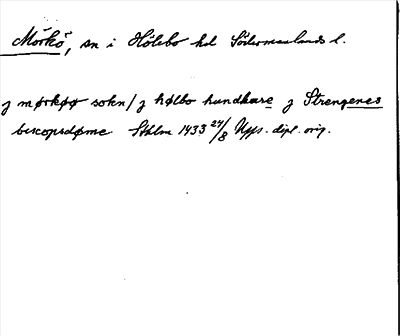 Mörkö, sn i Hölebo hd Södermanlands l.
j mørkøø sokn / j hølbo hundkare j Strengenes
biscopsdøme Sthlm 1433 24/8 Upps. dipl. orig.